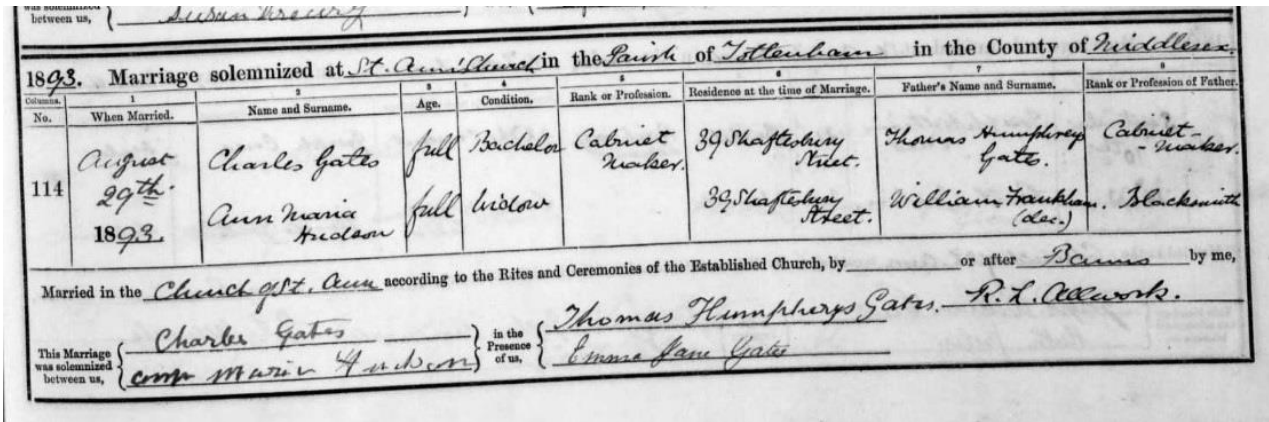 was solemnized
between us,
1893. Marriage solemnized at St. Ann's Church in the Parish of Tottenham in the County of Middlesex.
Columns. 1 2 3 4 5 6 7 8
No. When Married. Name and Surname. Age. Condition. Rank or Profession. Residence at the time of Marriage. Father's Name and Surname. Rank or Profession of Father.
114 August 29th. 1893. Charles Gates full Bachelor Cabinet Maker. 39 Shaftesbury Street. Thomas Humphreys Gates. Cabinet-Maker.
Ann Maria Hudson full Widow 39, Shaftesbury Street. William Frankham. (dec.) Blacksmith
Married in the Church of St. Ann according to the Rites and Ceremonies of the Established Church, by or after Banns by me,
This Marriage was solemnized between us, { Charles Gates } in the Presence of us, { Thomas Humpherys Gates. R. L. Allwork.
Ann Maria Hudson Emma Jane Gates